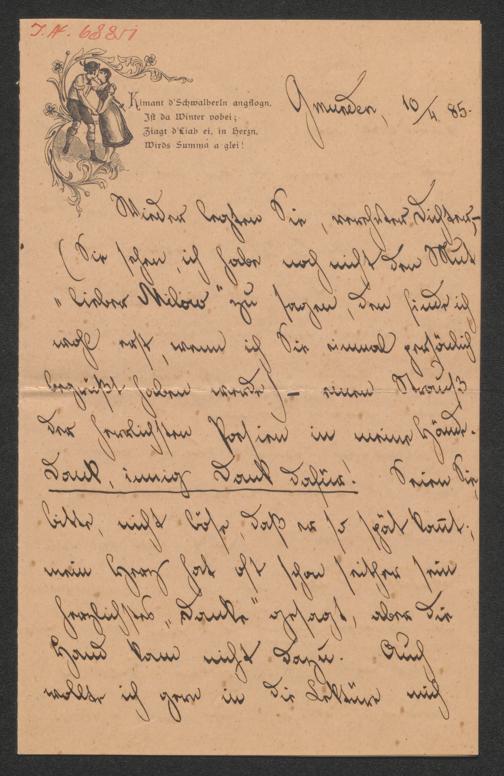 I.N. 6881
Kimant d'Schwalberln angflogn,
Ist da Winter vobei;
Ziagt d'Liab ei, in Herzn,
Wirds Summa a glei!
Gmunden, 10/4 85.
Wieder legten Sie, verehrter Dichter,
(Sie sehen, ich habe noch nicht den Mut
"lieber Milow" zu sagen, den finde ich
wohl erst, wenn ich Sie einmal persönlich
begrüßt haben werde) – einen Strauß
der herrlichsten Poesien in meine Hände.
Dank, innig Dank dafür! Seien Sie,
bitte, nicht böse, daß er so spät kommt;
mein Herz hat oft schon seither sein
herzlichstes "Danke" gesagt, aber die
Hand kam nicht dazu. Auch
wollte ich gern in die Lektüre mich